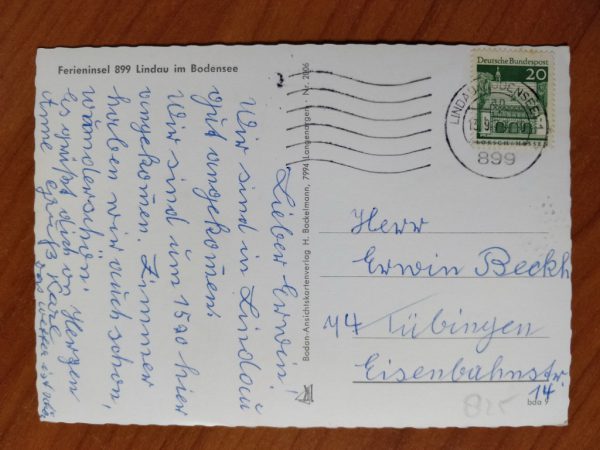 Ferieninsel 899 Lindau im Bodensee
Deutsche Bundespost
20
LORSCH/HESSEN
LINDAU (BODENSEE) 1
899
Bodan-Ansichtskartenverlag H. Bockelmann, 7994 Langenargen - Nr.
Lieber Erwin!
Wir sind in Lindau
gut angekom̄en.
Wir sind um 1500 hier
angekom̄en. Zimmer
haben wir auch schon,
wunderschön.
Es grüßt dich von Herzen
Anne
Gruß Karl
das Wetter ist
Herr
Erwin Beckh
74 Tübingen
Eisenbahnstr.
14
bda 9
825